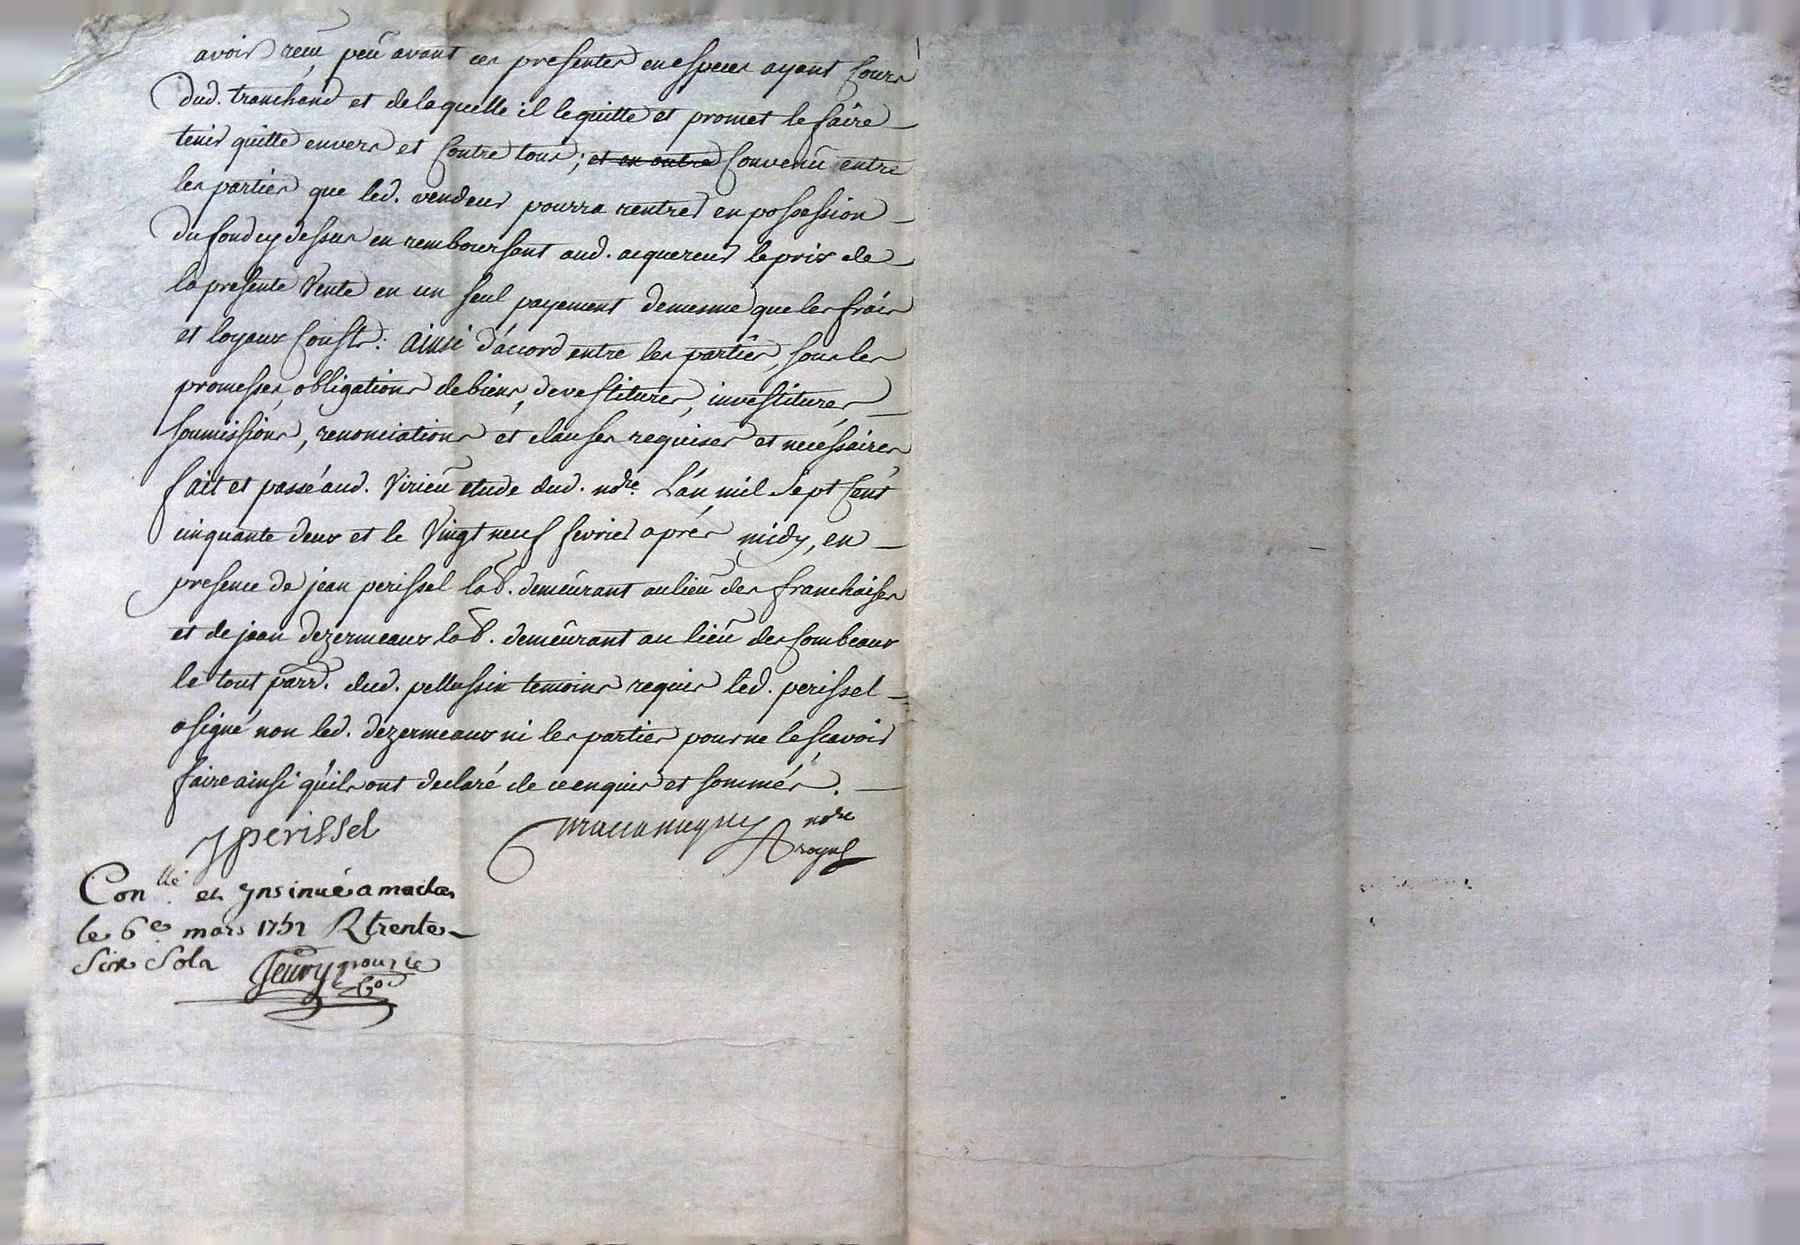 avoir reçu peû avant ces presentes en especes ayant Cours
dud. tranchand et de laquelle il le quitte et promet le faire
tenir quitte envers et Contre tous; et en outre Convenû entre
les parties que led. vendeur pourra rentrer en possession
du fond cy dessus en remboursant aud. acquereur le prix de
la presente Vente en un seul payement demesme que les frais
et loyaux Consts: ainsi d'accord entre les parties, sous les
promesses, obligations de biens, devestitures, investitures,
soumissions, renonciations et clauses requises et necessaires
fait et passé aud. Virieû etude dud. nore. L'an mil Sept Cent
cinquante deux et le Vingt neuf fevrier aprés midy, en
presence de jean perissel lab. demeûrant au lieû des franchaises
et de jean dezermeaux lab. demeûrant au lieû des Combeaux
le tout parr. dud. pellussin temoins requis led. perissel
a signé non led. dezermeaux ni les parties pour ne le sçavoir
faire ainsi qu'ils ont declaré de ce enquis et sommés.
J perissel
nore
royal
Conllé et ynsinué a maclas
le 6e mars 1752 R trente
Six Sols